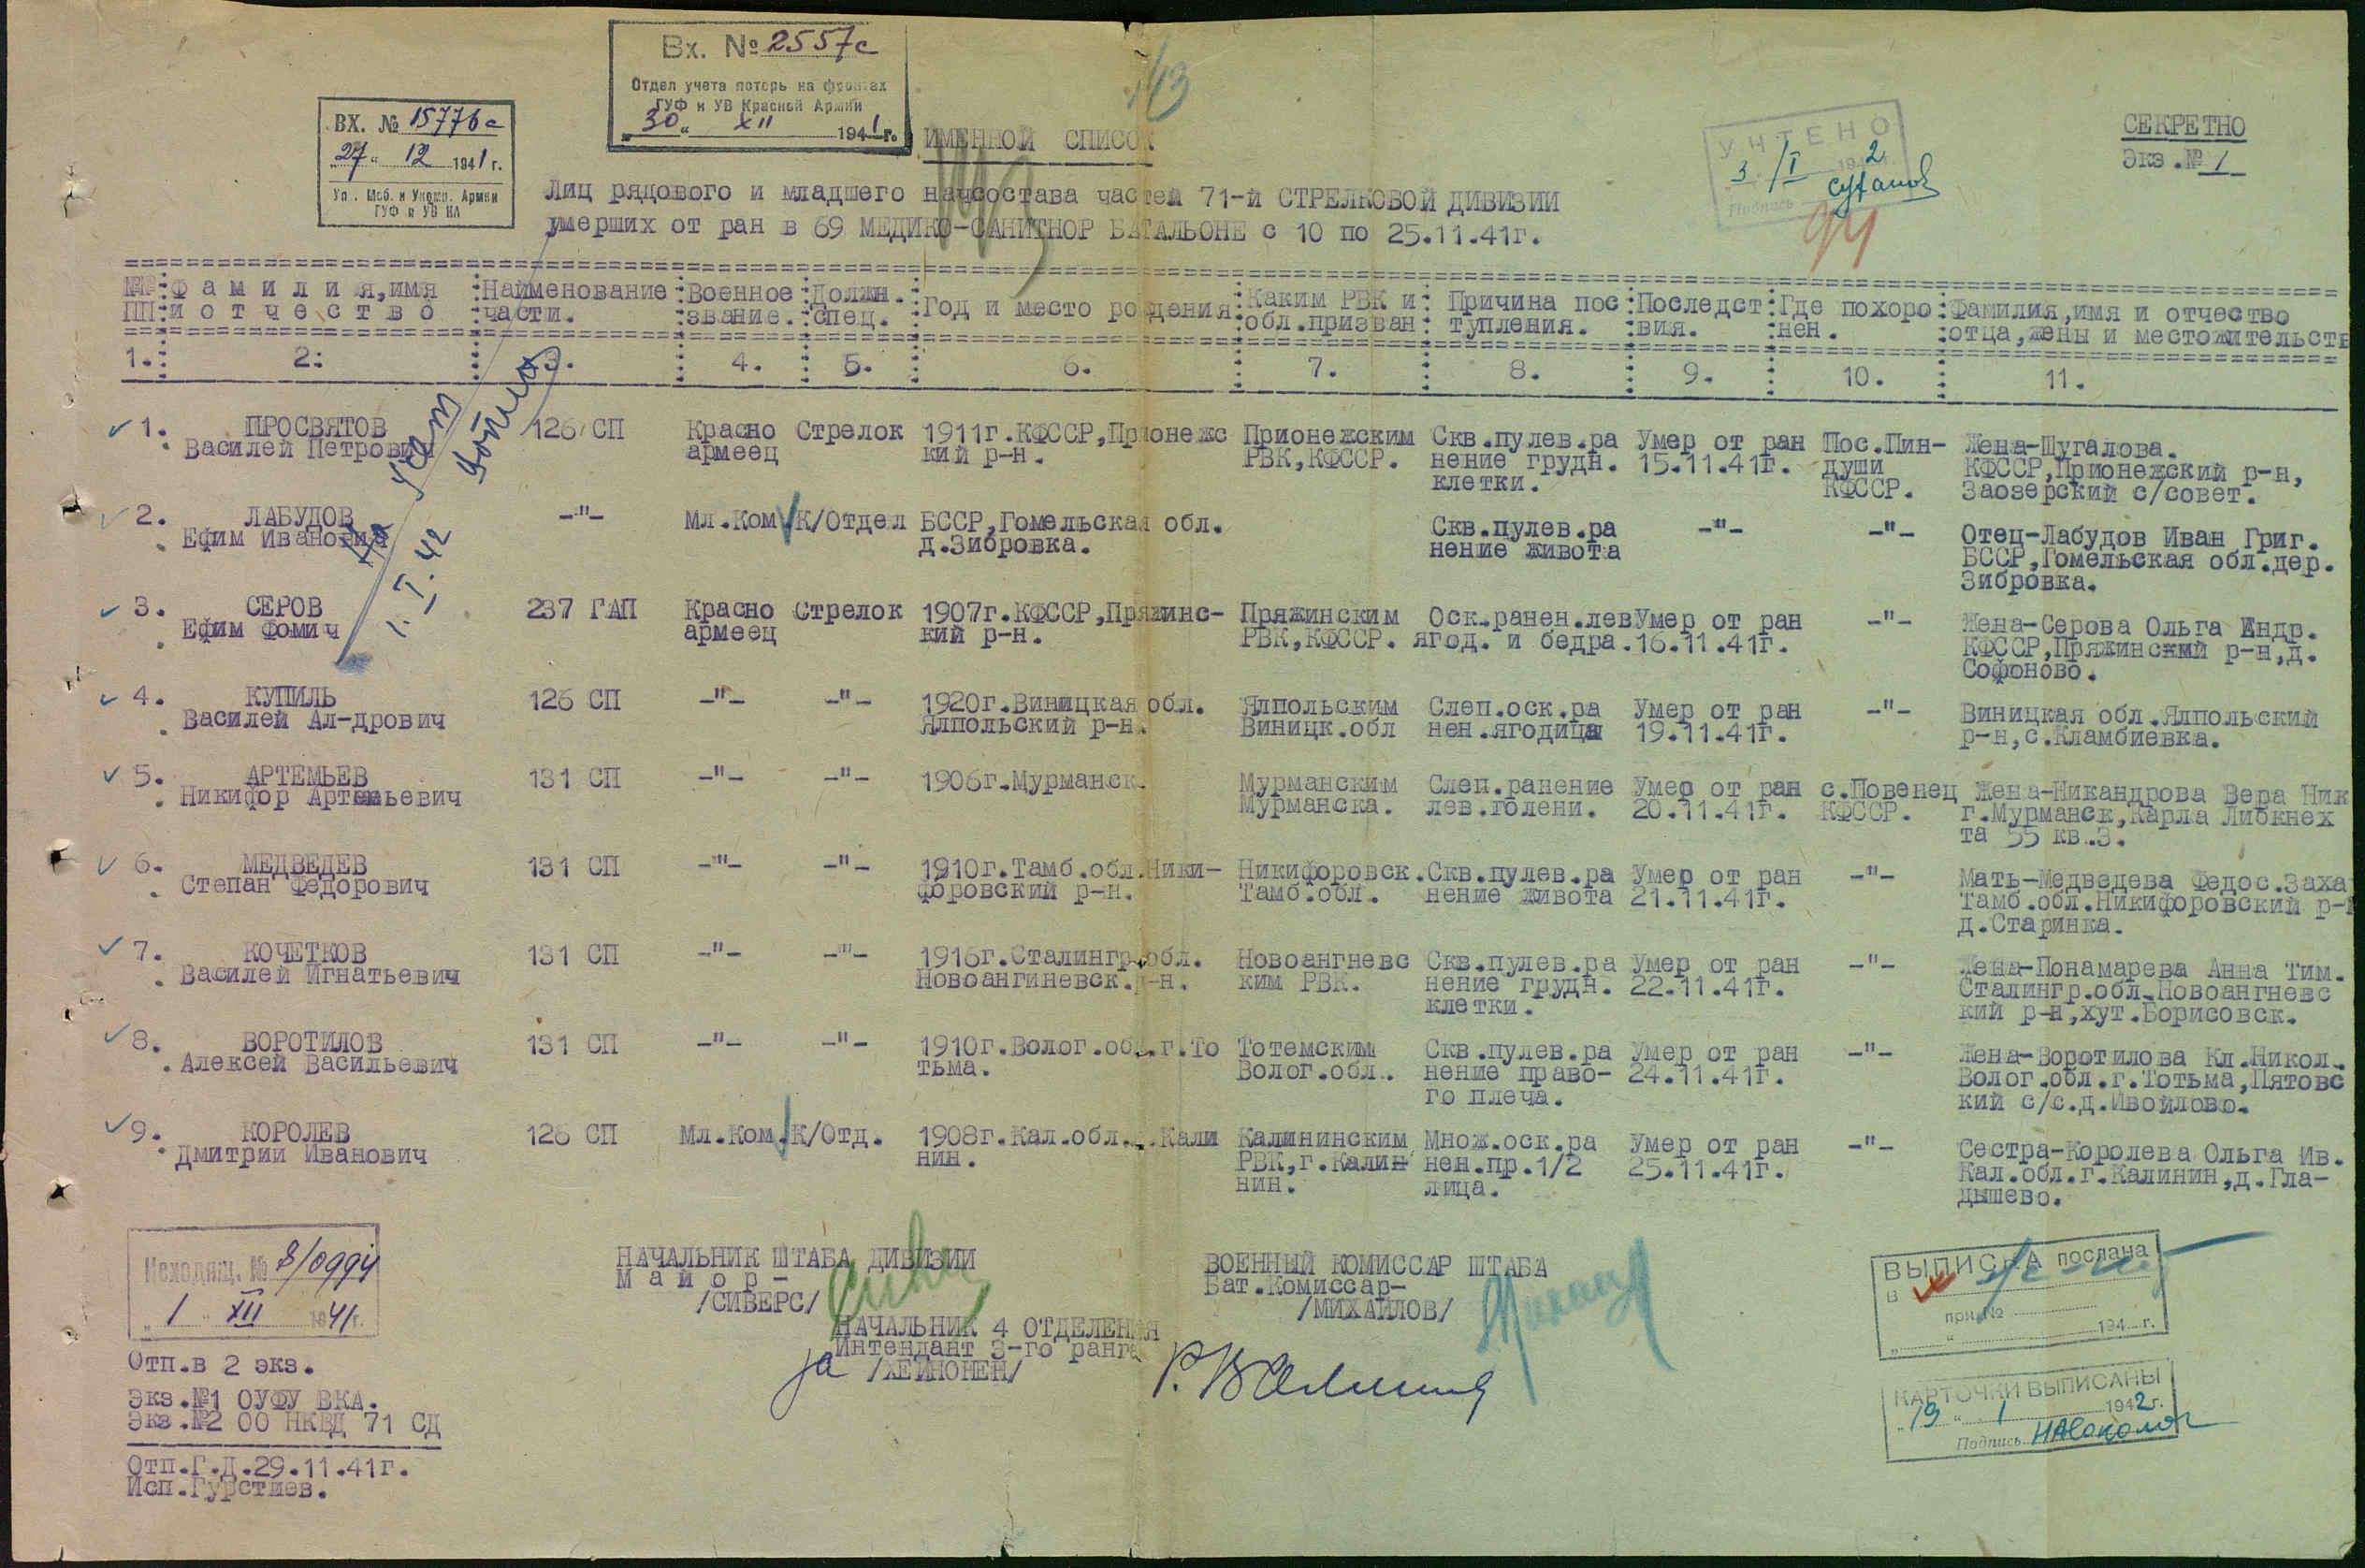 Вх. № 2557с
Отдел учета потерь на фронтах
ГУФ и УВ Красной Армии
„30“ XII 1941г.
ВХ. № 15776с
„27“ 12 1941г.
Уп. Моб. и Укомп. Армии
ГУФ и УВ КА
УЧТЕНО
3/I 1942г.
Подпись
94
СЕКРЕТНО
Экз.№ 1
ИМЕННОЙ СПИСОК
Лиц рядового и младшего начсостава частей 71-й СТРЕЛКОВОЙ ДИВИЗИИ
умерших от ран в 69 МЕДИКО-САНИТНОР БАТАЛЬОНЕ с 10 по 25.11.41г.
№№ ПП : Ф а м и л и я,имя и о т ч е с т в о : Наименование части. : Военное звание. : Должн. спец. : Год и место рождения : Каким РВК и обл.призван : Причина пос тупления. : Последст вия. : Где похоро нен. : Фамилия,имя и отчество отца,жены и местожительств
1. : 2: : 3. : 4. : 5. : 6. : 7. : 8. : 9. : 10. : 11.
1. ПРОСВЯТОВ 126 СП Красно Стрелок 1911г.КФССР,Прионежс Прионежским Скв.пулев.ра Умер от ран Пос.Пин- Жена-Шугалова.
Василей Петрович армеец кий р-н. РВК,КФССР. нение грудн. 15.11.41г. души КФССР,Прионежский р-н,
клетки. КФССР. Заозерский с/совет.
2. ЛАБУДОВ -"- Мл.Ком К/Отдел БССР,Гомельская обл. Скв.пулев.ра -"- -"- Отец-Лабудов Иван Григ.
Ефим Иванович д.Зибровка. нение живота БССР,Гомельская обл.дер.
Зибровка.
1.I.42
3. СЕРОВ 237 ГАП Красно Стрелок 1907г.КФССР,Пряжинс- Пряжинским Оск.ранен.лев Умер от ран -"- Жена-Серова Ольга Андр.
Ефим Фомич армеец кий р-н. РВК,КФССР. ягод. и бедра. 16.11.41г. КФССР,Пряжинский р-н,д.
Софоново.
4. КУПИЛЬ 126 СП -"- -"- 1920г.Виницкая обл. Ялпольским Слеп.оск.ра Умер от ран -"- Виницкая обл.Ялпольский
Василей Ал-дрович Ялпольский р-н. Виницк.обл нен.ягодицы 19.11.41г. р-н,с.Кламбиевка.
5. АРТЕМЬЕВ 131 СП -"- -"- 1906г.Мурманск. Мурманским Слеп.ранение Умер от ран с.Повенец Жена-Никандрова Вера Ник
Никифор Артемьевич Мурманска. лев.голени. 20.11.41г. КФССР. г.Мурманск,Карла Либкнех
та 55 кв.3.
6. МЕДВЕДЕВ 131 СП -"- -"- 1910г.Тамб.обл.Ники- Никифоровск. Скв.пулев.ра Умер от ран -"- Мать-Медведева Федос.Заха
Степан Федорович форовский р-н. Тамб.обл. нение живота 21.11.41г. Тамб.обл.Никифоровский р-н
д.Старинка.
7. КОЧЕТКОВ 131 СП -"- -"- 1916г.Сталингр.обл. Новоангневс Скв.пулев.ра Умер от ран -"- Жена-Понамарева Анна Тим.
Василей Игнатьевич Новоангиневск.р-н. ким РВК. нение грудн. 22.11.41г. Сталингр.обл.Новоангневс
клетки. кий р-н,хут.Борисовск.
8. ВОРОТИЛОВ 131 СП -"- -"- 1910г.Волог.обл.г.То Тотемским Скв.пулев.ра Умер от ран -"- Жена-Воротилова Кл.Никол.
Алексей Васильевич тьма. Волог.обл. нение право- 24.11.41г. Волог.обл.г.Тотьма,Пятовс
го плеча. кий с/с.д.Ивойлово.
9. КОРОЛЕВ 126 СП Мл.Ком. К/Отд. 1908г.Кал.обл.г.Кали Калининским Множ.оск.ра Умер от ран -"- Сестра-Королева Ольга Ив.
Дмитрий Иванович нин. РВК,г.Калин нен.пр.1/2 25.11.41г. Кал.обл.г.Калинин,д.Гла-
нин. лица. дышево.
Исходящ. № 8/0994
„1“ XII 1941г.
НАЧАЛЬНИК ШТАБА ДИВИЗИИ
М а й о р -
/СИВЕРС/
ВОЕННЫЙ КОМИССАР ШТАБА
Бат.Комиссар-
/МИХАЙЛОВ/
НАЧАЛЬНИК 4 ОТДЕЛЕНИЯ
Интендант 3-го ранга
за /ХЕЙНОНЕН/
ВЫПИСКА послана
в
при №
„ “ 194 г.
КАРТОЧКИ ВЫПИСАНЫ
„19“ 1 1942г.
Подпись
Отп.в 2 экз.
Экз.№1 ОУФУ ВКА.
Экз.№2 ОО НКВД 71 СД
Отп.Г.Д.29.11.41г.
Исп.Гурстиев.